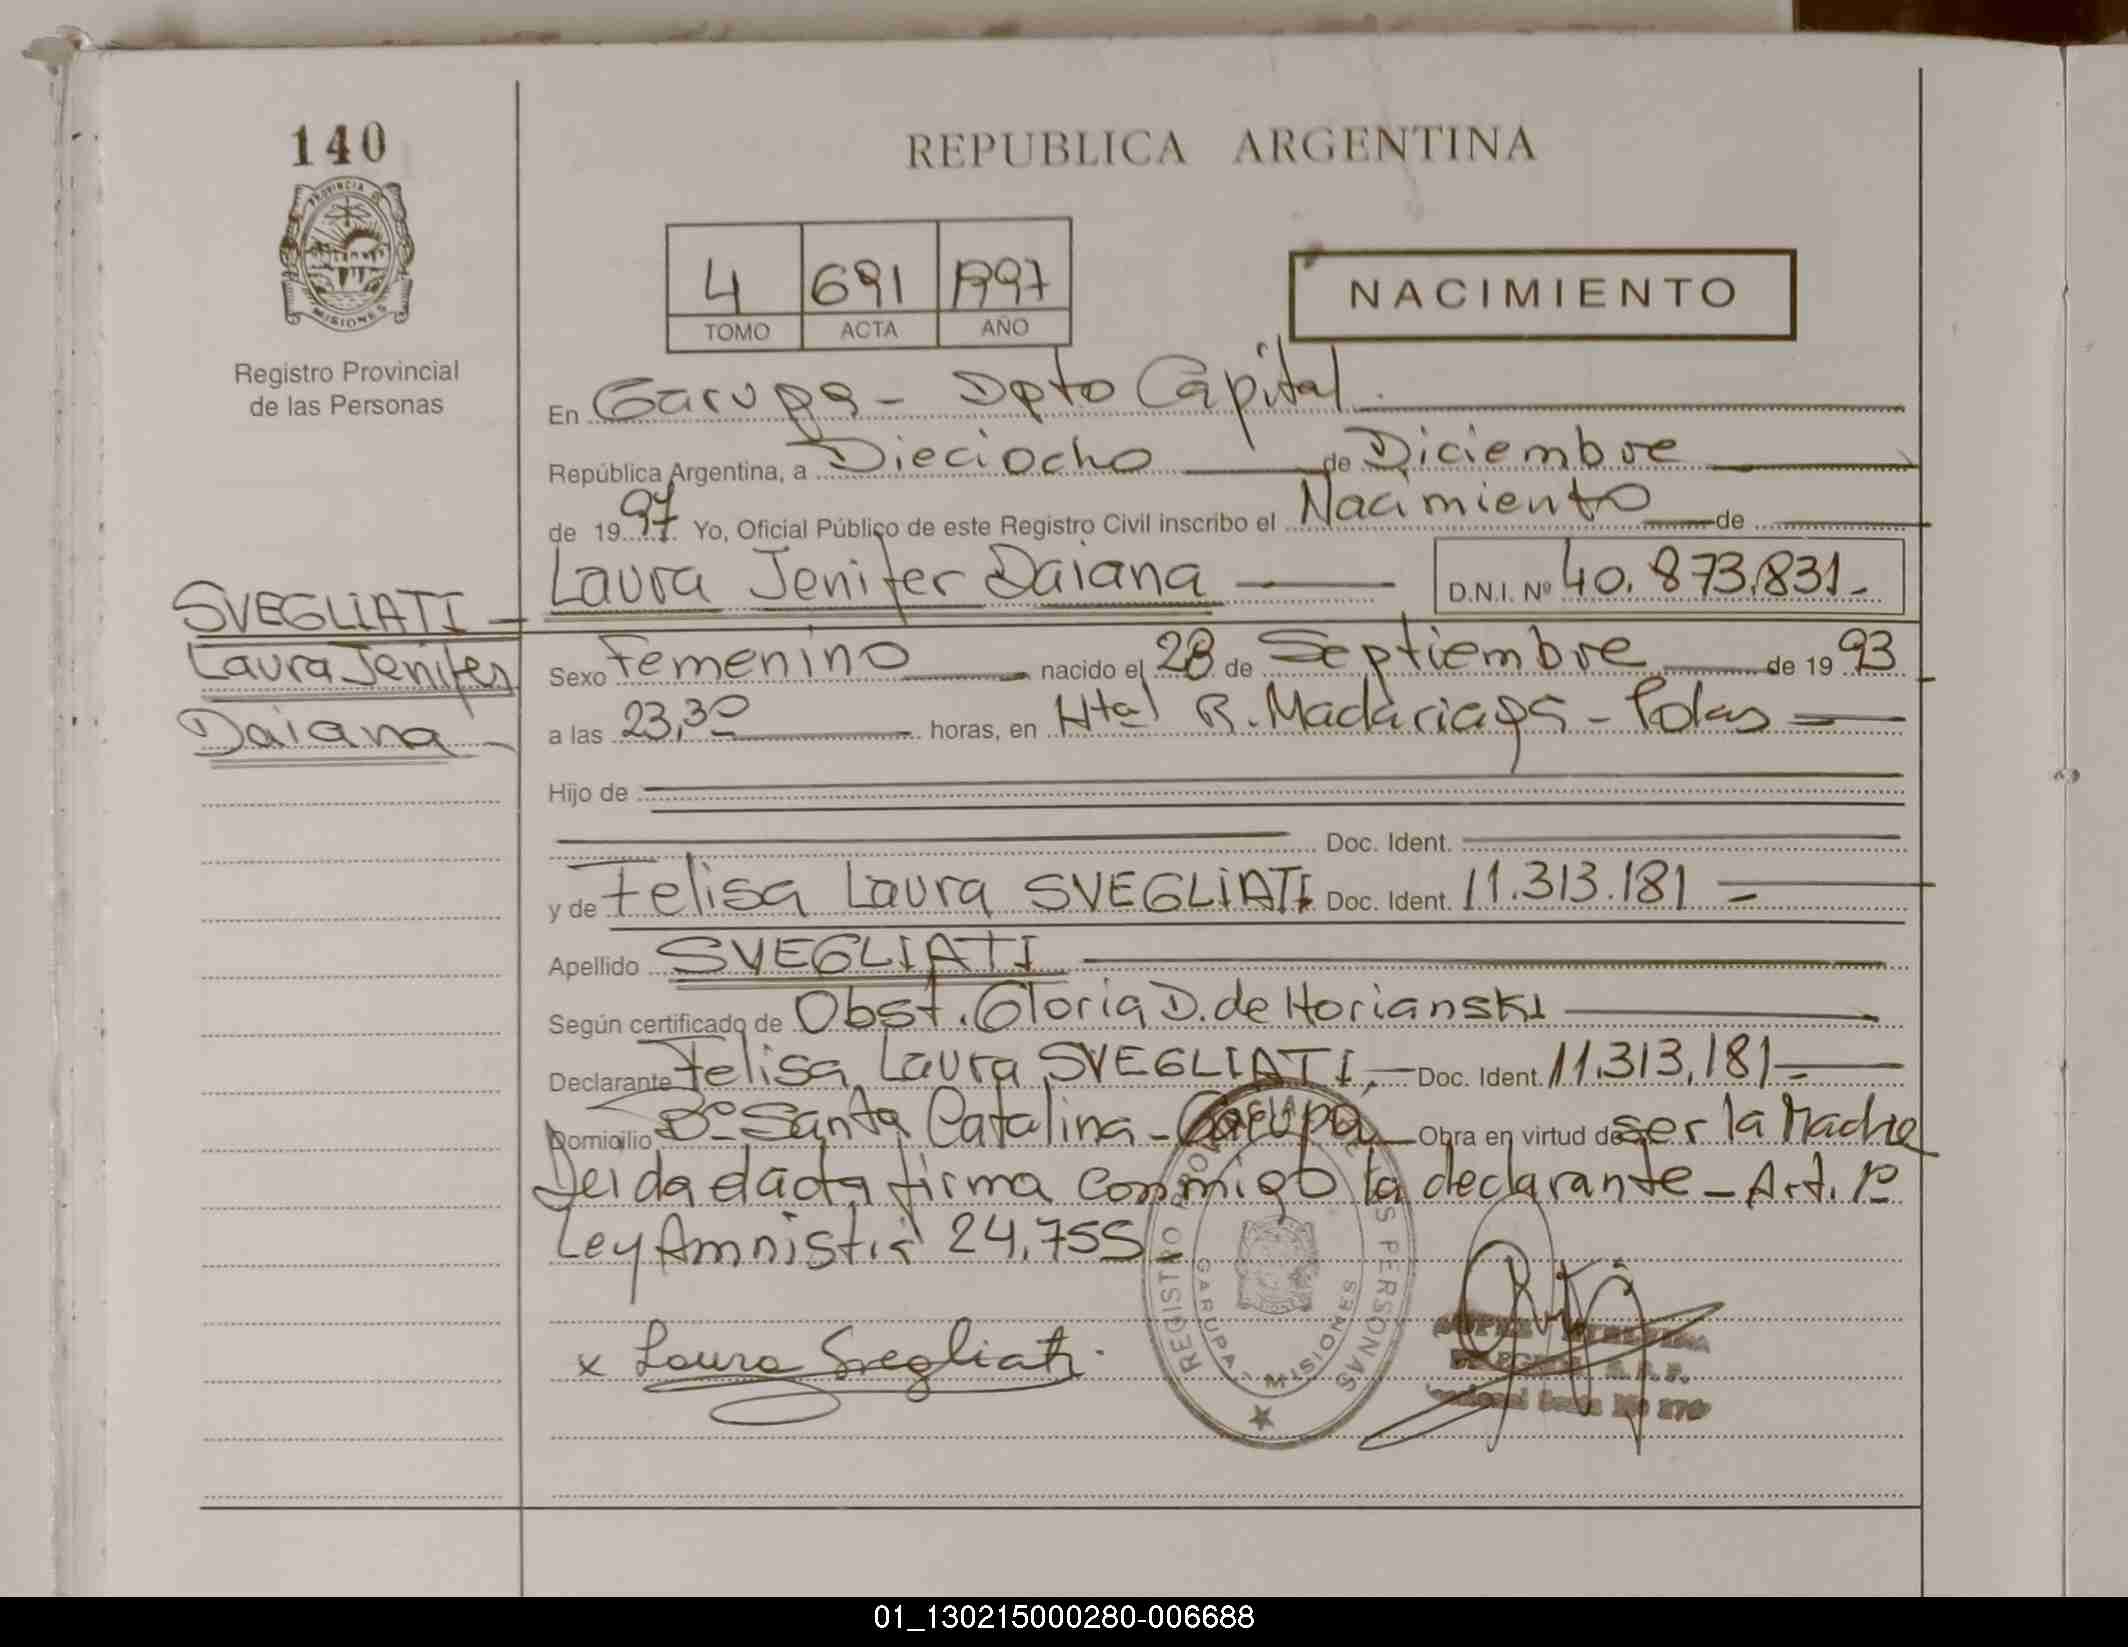 140
REPUBLICA ARGENTINA
PROVINCIA DE
MISIONES
Registro Provincial
de las Personas
4 691 1997
TOMO ACTA AÑO
NACIMIENTO
En Garupa - Dpto Capital.
República Argentina, a Dieciocho de Diciembre
de 1997 Yo, Oficial Público de este Registro Civil inscribo el Nacimiento de
Laura Jenifer Daiana D.N.I. Nº 40.873.831-
SVEGLIATI -
Laura Jenifer
Daiana -
Sexo Femenino nacido el 28 de Septiembre de 1993
a las 23,30 horas, en Htal R. Madariaga - Pdas
Hijo de
Doc. Ident.
y de Felisa Laura SVEGLIATI Doc. Ident. 11.313.181
Apellido SVEGLIATI
Según certificado de Obst. Gloria D. de Horianski
Declarante Felisa Laura SVEGLIATI, Doc. Ident. 11.313.181
Domicilio Bº Santa Catalina - Garupa Obra en virtud de ser la Madre
Leida el acta firma conmigo la declarante - Art. 1º
Ley Amnistia 24.755
x Laura Svegliati.
REGISTRO PERSONAS
GARUPA - MISIONES
01_130215000280-006688